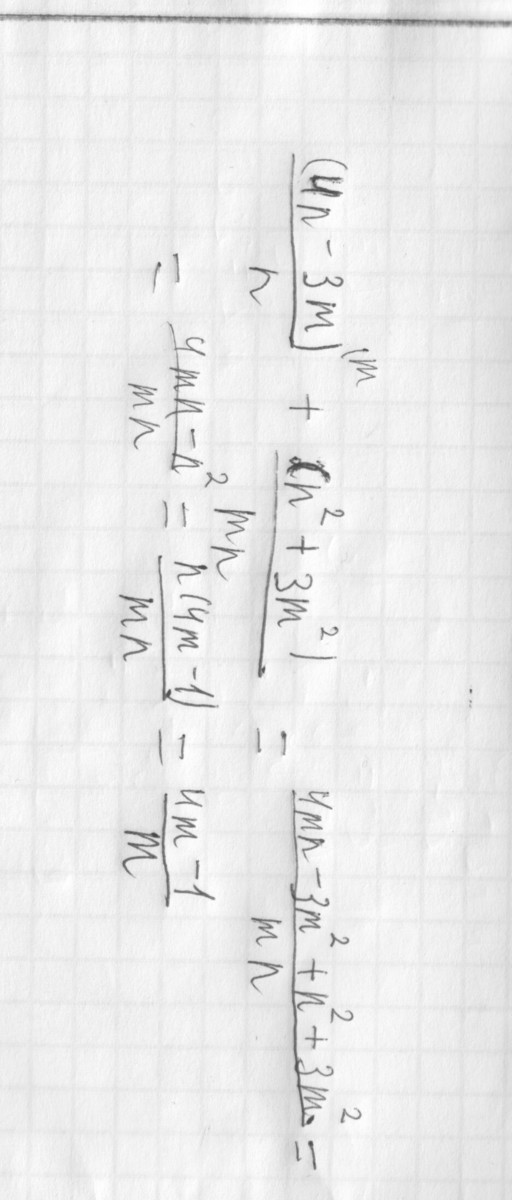 (4n - 3m)^{(m} / n + (n² + 3m²) / mn = (4mn - 3m² + n² + 3m²) / mn =
= (4mn - n²) / mn = n(4m - 1) / mn = (4m - 1) / m